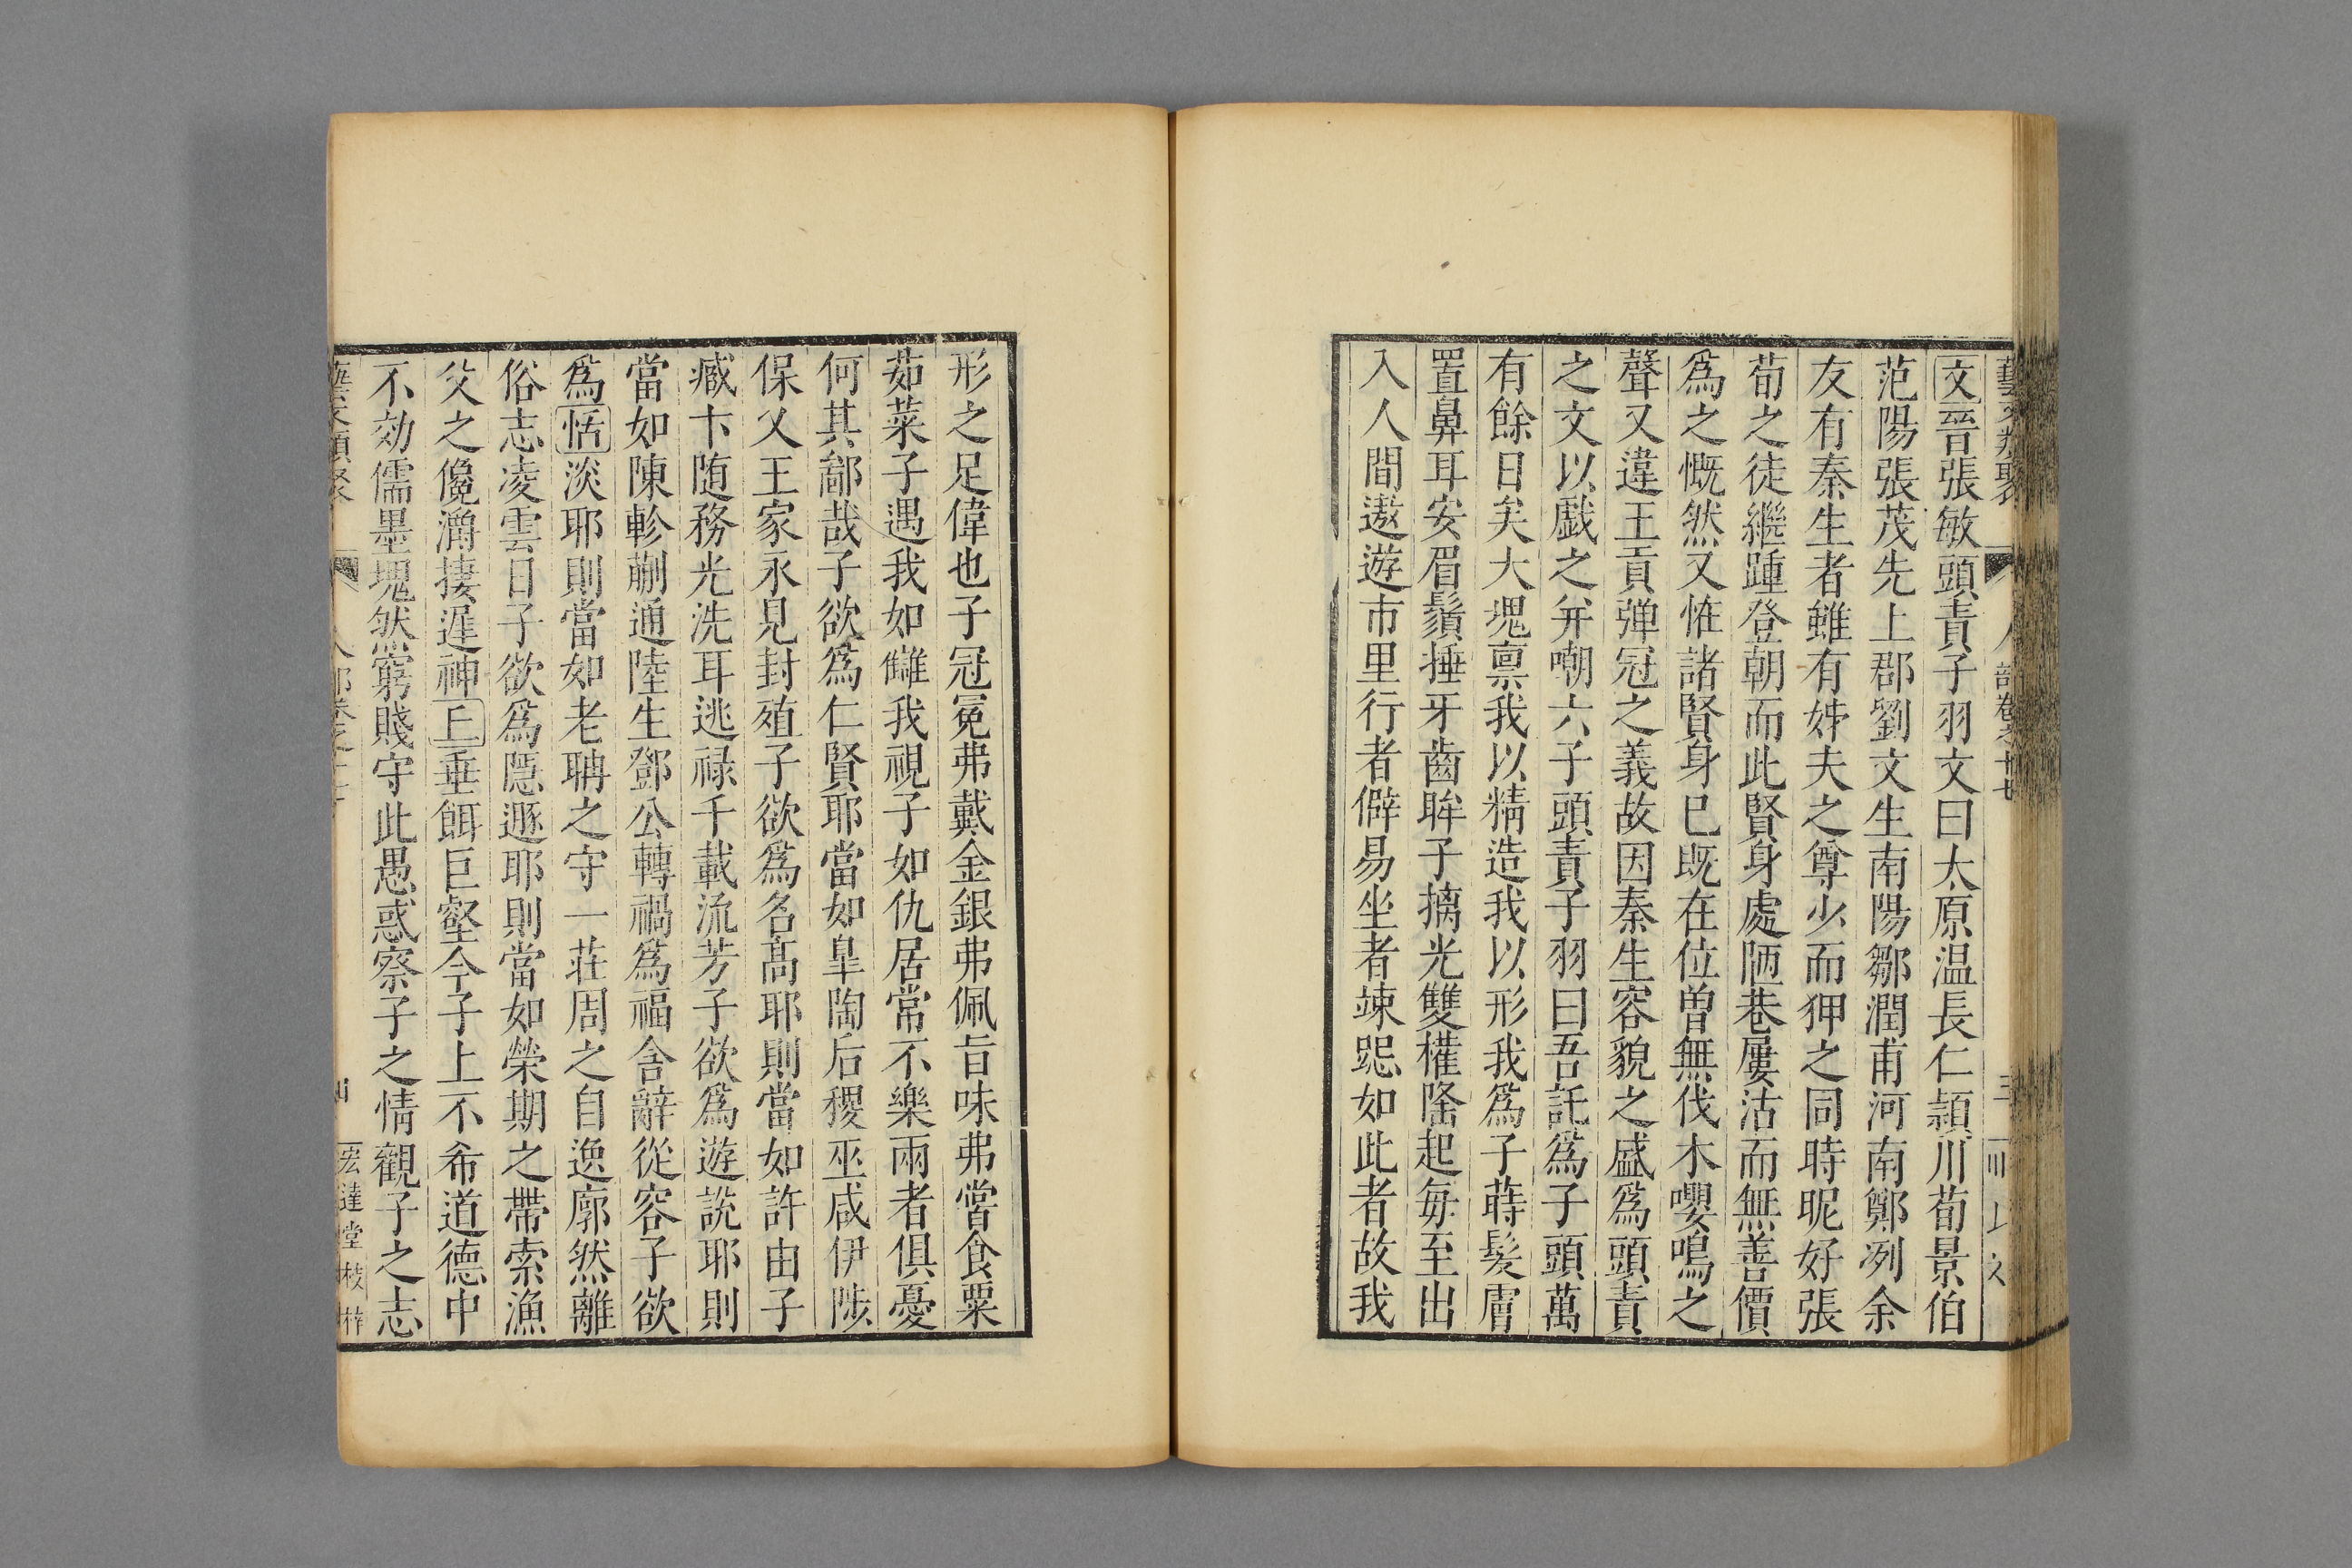 文晉張敏頭責子羽文曰太原温長仁頴川荀景伯
范陽張茂先上郡劉文生南陽鄒潤甫河南鄭冽余
友有秦生者雖有姊夫之尊少而狎之同時昵好張
荀之徒繼踵登朝而此賢身處陋巷屢沽而無善價
爲之慨然又恠諸賢身已既在位曽無伐木嚶鳴之
聲又違王貢弹冠之義故因秦生容貌之盛爲頭責
之文以戯之并嘲六子頭責子羽曰吾託爲子頭萬
有餘日矣大塊禀我以精造我以形我爲子蒔髮膚
置鼻耳安眉鬚捶牙齒眸子摛光雙權隆起毎至出
入人間遨遊市里行者僻易坐者竦跽如此者故我
形之足偉也子冠冕弗戴金銀弗佩旨味弗嘗食粟
茹菜子遇我如讎我視子如仇居常不樂兩者俱憂
何其鄙哉子欲爲仁賢耶當如臯陶后稷巫咸伊陟
保乂王家永見封殖子欲爲名髙耶則當如許由子
臧卞随務光洗耳逃禄千載流芳子欲爲遊説耶則
當如陳軫蒯通陸生鄧公轉禍爲福含辭從容子欲
爲恬淡耶則當如老聃之守一荘周之自逸廓然離
俗志凌雲日子欲爲隱遯耶則當如榮期之帶索漁
父之儳灂捿遲神丘垂餌巨壑今子上不希道德中
不効儒墨塊然窮賤守此愚惑察子之情觀子之志
宏達堂校梓